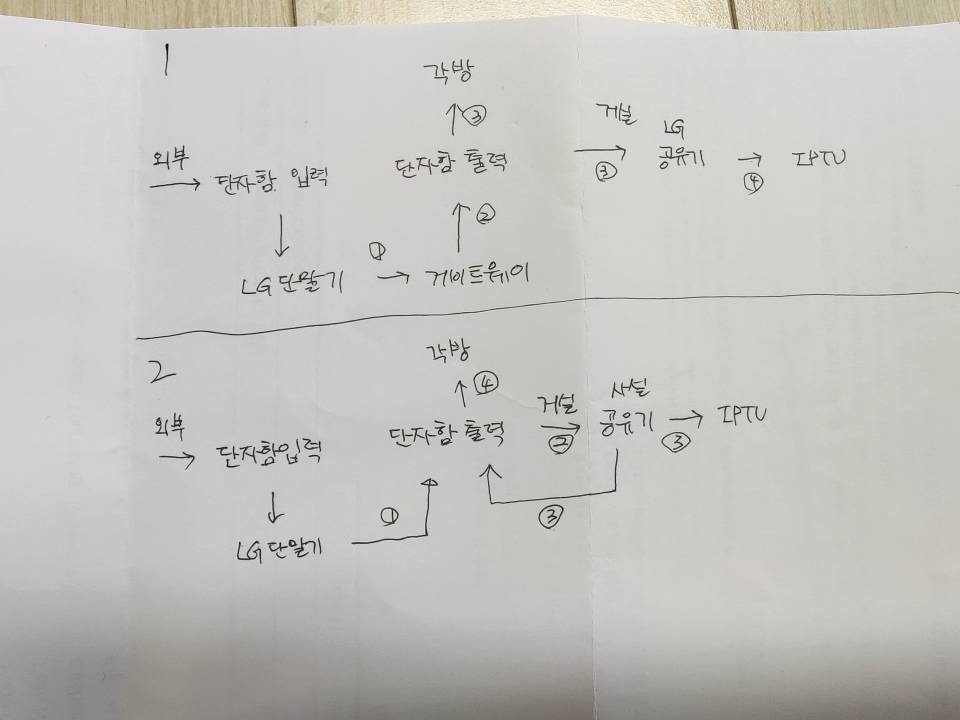 1
각방
③
거실
외부
단자함 입력
단자함 출력
③
LG
공유기
④
IPTU
②
LG단말기
①
게이트웨이
2
각방
④
외부
단자함입력
단자함 출력
거실
②
사설
공유기
③
IPTU
①
③
LG단말기